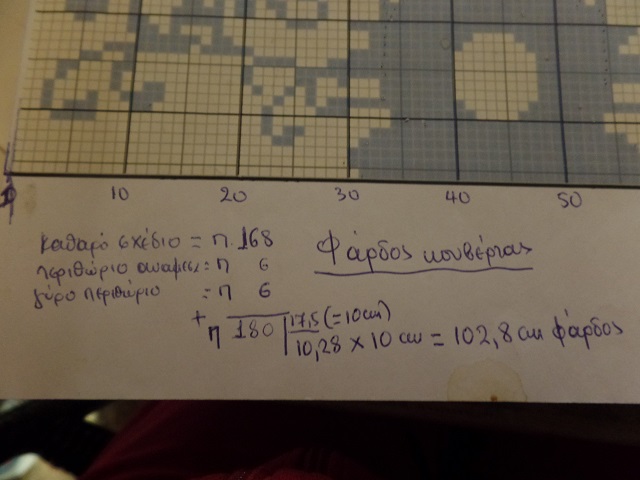 0 10 20 30 40 50
καθαρό σχέδιο = π. 168
Φάρδος κουβέρτας
περιθώριο αναμεσ: = π 6
γύρο περιθώριο = π 6
+ π 180 17,5 (=10cm)
10,28 × 10 cm = 102,8 cm φάρδος